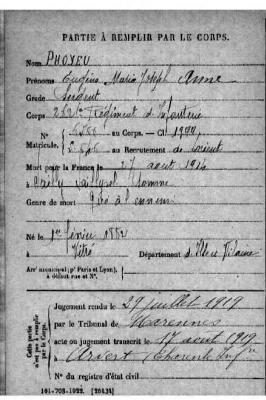 PARTIE À REMPLIR PAR LE CORPS.
Nom PHOYEU
Prénoms Eugène Marie Joseph Anne
Grade Sergent
Corps Régiment d'Infanterie
N° au Corps. — Cl
Matricule. au Recrutement de Lorient
Mort pour la France le 27 août 1914
à Somme
Genre de mort Tué à l'ennemi
Né le 1er février 1882
à Vitré Département d'Ille et Vilaine
Arr' municipal (p' Paris et Lyon),
à défaut rue et N°.
Cette partie
n'est pas à remplir
par le Corps.
Jugement rendu le 29 juillet 1919
par le Tribunal de Marennes
acte ou jugement transcrit le 17 août 1919
à Arvert (Charente Infre)
N° du registre d'état civil
161-708-1922. [26434]